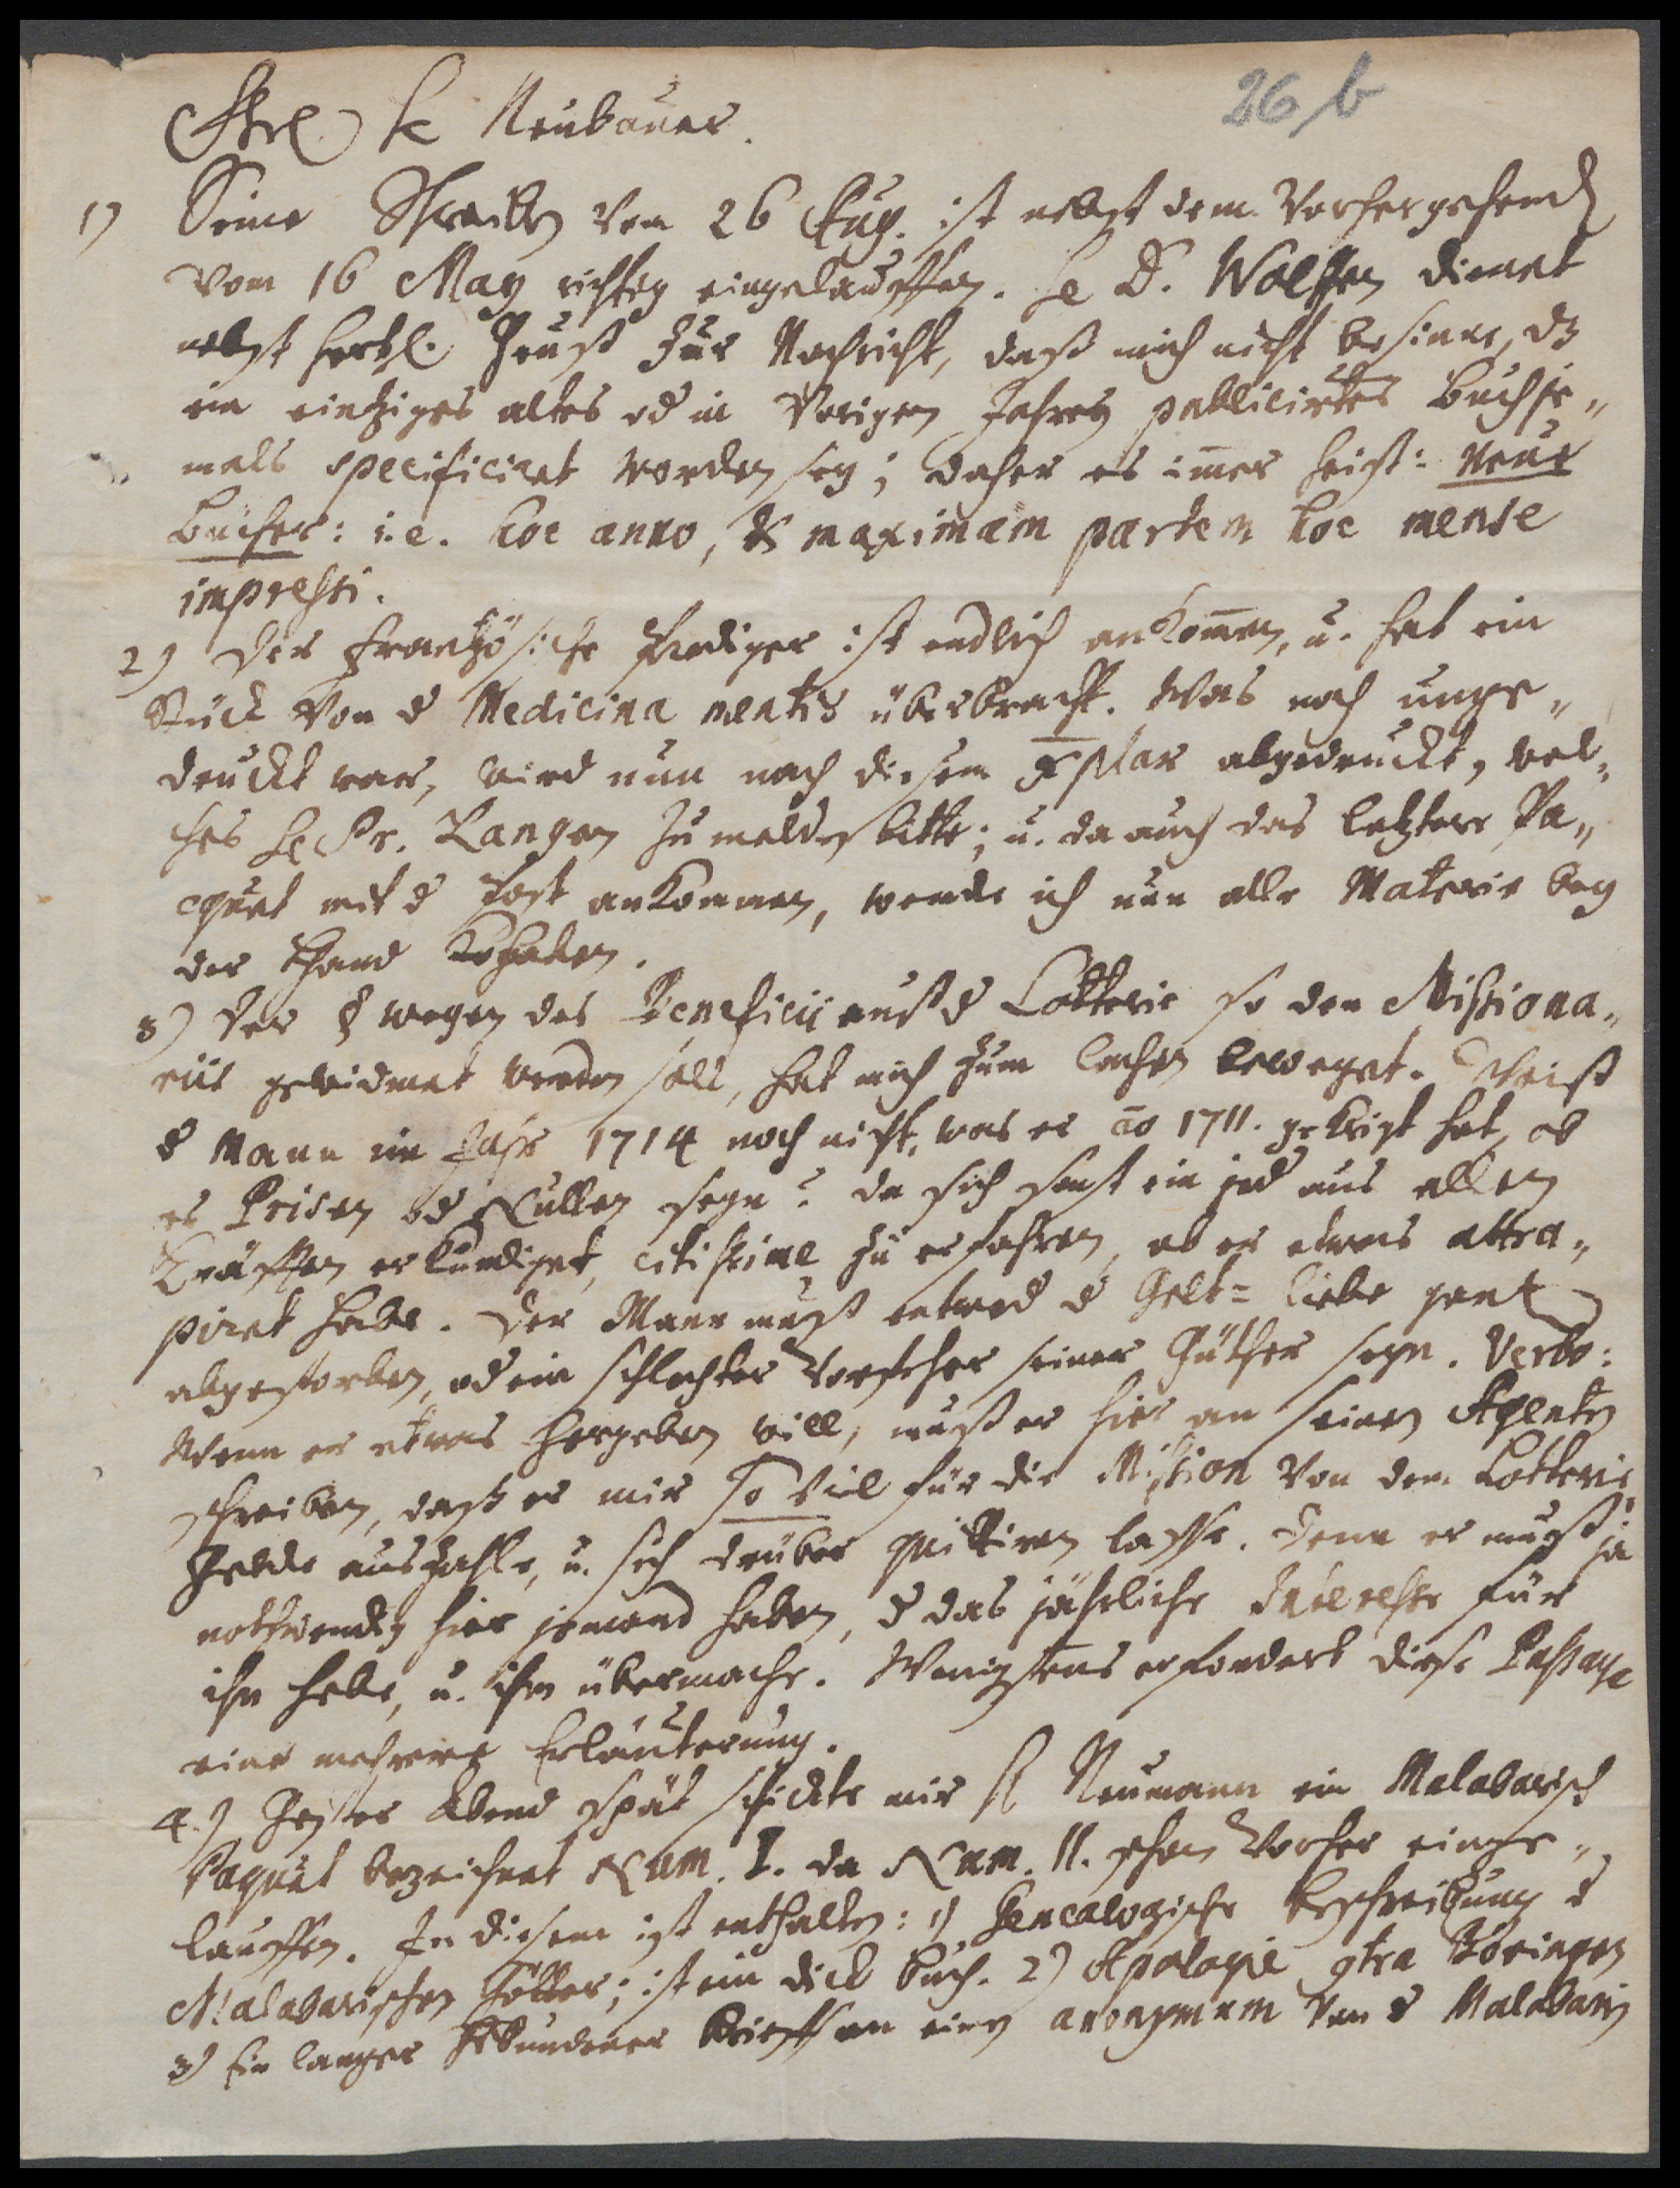 26 b
H Neubauer.
1) Seine Schreiben vom 26 Aug. ist nebst dem vorhergehend
vom 16 May richtig eingelauffen. H D. Wolffen dienet
nebst hertzl. Gruß zur Nachricht, daß mich nicht besinne, dz
ein eintziges altes od in vorigen Jahren publicirtes Buch je„
mals specificiret worden sey; daher es im̄er heist: Neue
Bücher: i.e. hoc anno, & maximam partem hoc mense
impressi.
2) Der Frantzösische Prediger ist endlich ankom̄en, u. hat ein
Stück von d Medicina mentis überbracht. Was noch unge„
druckt war, wird nun nach diesem Explar abgedruckt, wel„
ches H Pr. Langen zu melden bitte; u. da auch das letztere Pa„
cquet mit d Post ankommen, werde ich nun alle Materie bey
der Hand haben.
3) Der § wegen des Beneficii auß d Lotterie so den Missiona„
riis gewidmet werden soll, hat mich zum lachen beweget. Weiß
d Mann im Jahr 1714 noch nicht, was er ao 1711. gekrigt hat, ob
es Prisen od Nullen seyn? da sich sonst ein jed aus allen
Kräfften erkundiget, citissime zu erfahren, ob er etwas attra„
piret habe. Der Mann muß entwed d Gelt= liebe gantz
abgestorben, od ein schlechter Vorsteher seiner Güther seyn. Verbo:
Wenn er etwas hergeben will, muß er hier an seinen Agenten
schreiben, daß er mir so viel für die Mission von dem Lotterie
Gelde auszahle, u. sich drüber quittiren lasse. Denn er muß ja
nothwendig hier jemand haben, d das jährliche Interesse für
ihn hebe, u. ihm übermache. Wenigstens erfordert diese Passage
eine mehrere Erläuterung.
4.) Gestern Abend spät schickte mir H Neumann ein Malabarisch
Paquet bezeichnet Num. I. da Num. II. schon vorher einge„
lauffen. In diesem ist enthalten: 1) Genealogische Beschreibung d
Malabarischen Götter; ist ein dick Buch. 2) Apologie gtra Bövingen
3) Ein langer gebundener Brieff an einen anonymum von d Malabaren